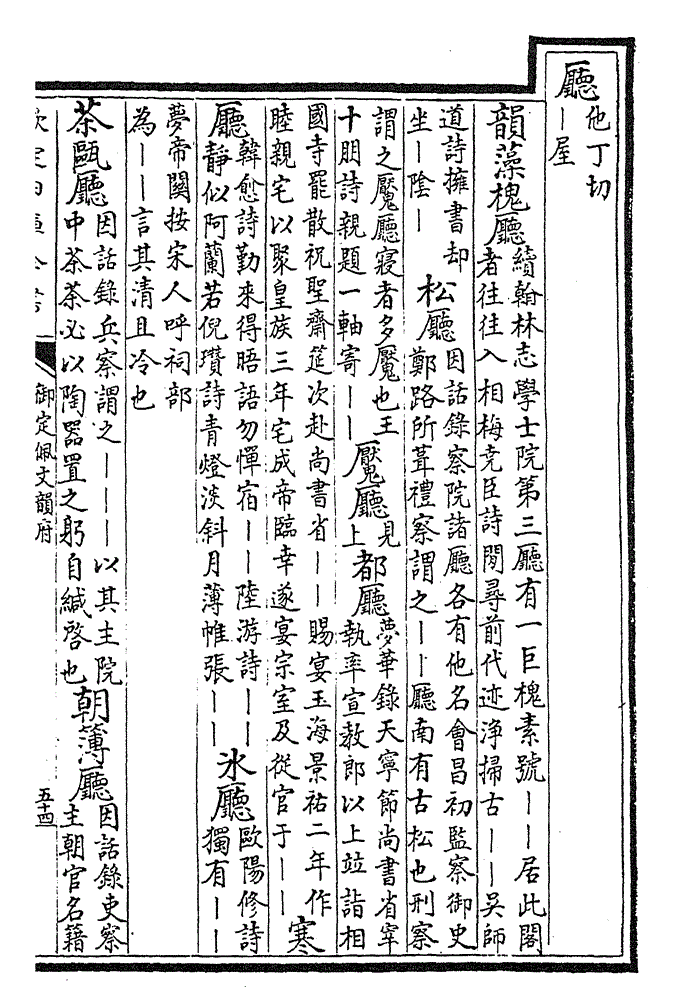 廳
他丁切
—屋
韻藻槐廳
續翰林志學士院第三廳有一巨槐素號——居此閣
者往往入相梅堯臣詩閒尋前代迹淨掃古——吳師
道詩擁書却
坐—陰—
松廳
因話錄察院諸廳各有他名會昌初監察御史
鄭路所葺禮察謂之——廳南有古松也刑察
謂之魘廳寢者多魘也王
十朋詩親題一軸寄——
魘廳
見
上
都廳
夢華錄天寧節尚書省宰
執率宣教郎以上竝詣相
國寺罷散祝聖齋筵次赴尚書省——賜宴玉海景祐二年作
睦親宅以聚皇族三年宅成帝臨幸遂宴宗室及從官于——
寒
廳
韓愈詩勤來得晤語勿憚宿——陸游詩——
靜似阿蘭若倪瓚詩青燈淡斜月薄帷張——
氷廳
歐陽修詩
獨有——
夢帝闕按宋人呼祠部
為——言其清且冷也
茶甌廳
因話錄兵察謂之———以其主院
中茶茶必以陶器置之躬自緘啓也
朝簿廳
因話錄吏察
主朝官名籍
欽定四庫全書
御定佩文韻府
五十四